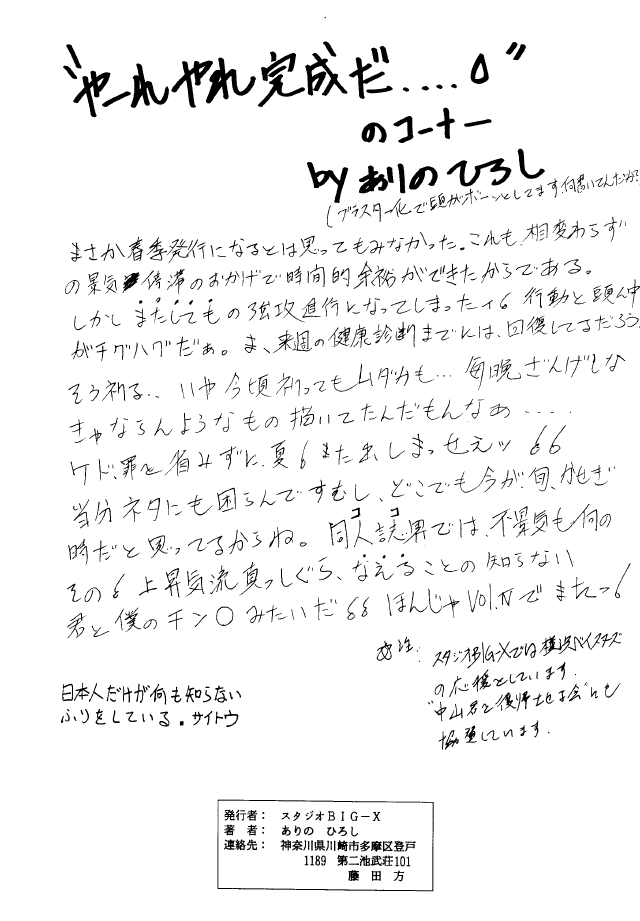 "やーれやれ完成だ....○"
のコーナー
by ありのひろし
(ブラスター化で頭がボーッとしてます。何書いてんだか?
まさか春季発行になるとは思ってもみなかった。これも、相変わらず
の景気停滞のおかげで時間的余裕ができたからである。
しかしまたしてもの強攻進行になってしまったィ6 行動と頭ん中
がチグハグだぁ。ま、来週の健康診断までには、回復してるだろう
そう祈る.. いや今頃祈ってもムダかも… 毎晩ざんげしな
きゃならんようなもの描いてたんだもんなぁ.....
ケド、罪を省みずに、夏もまた出しまっせぇッ 66
当分ネタにも困らんですむし、どこでも今が旬、かせぎ
時だと思ってるからね。同人誌界では、不景気も何の
ココ
その6 上昇気流真っしぐら、なえることの知らない
君と僕のチン○みたいだ 66 ほんじゃVol.Ⅳでまたっ6
スタジオBIG-Xでは横浜ベイスターズ
の応援をしています。
"中山君を復帰させる会"にも
協賛しています。
日本人だけが何も知らない
ふりをしている。サイトウ
発行者: スタジオBIG-X
著 者: ありの ひろし
連絡先: 神奈川県川崎市多摩区登戸
1189 第二池武荘101
藤田方